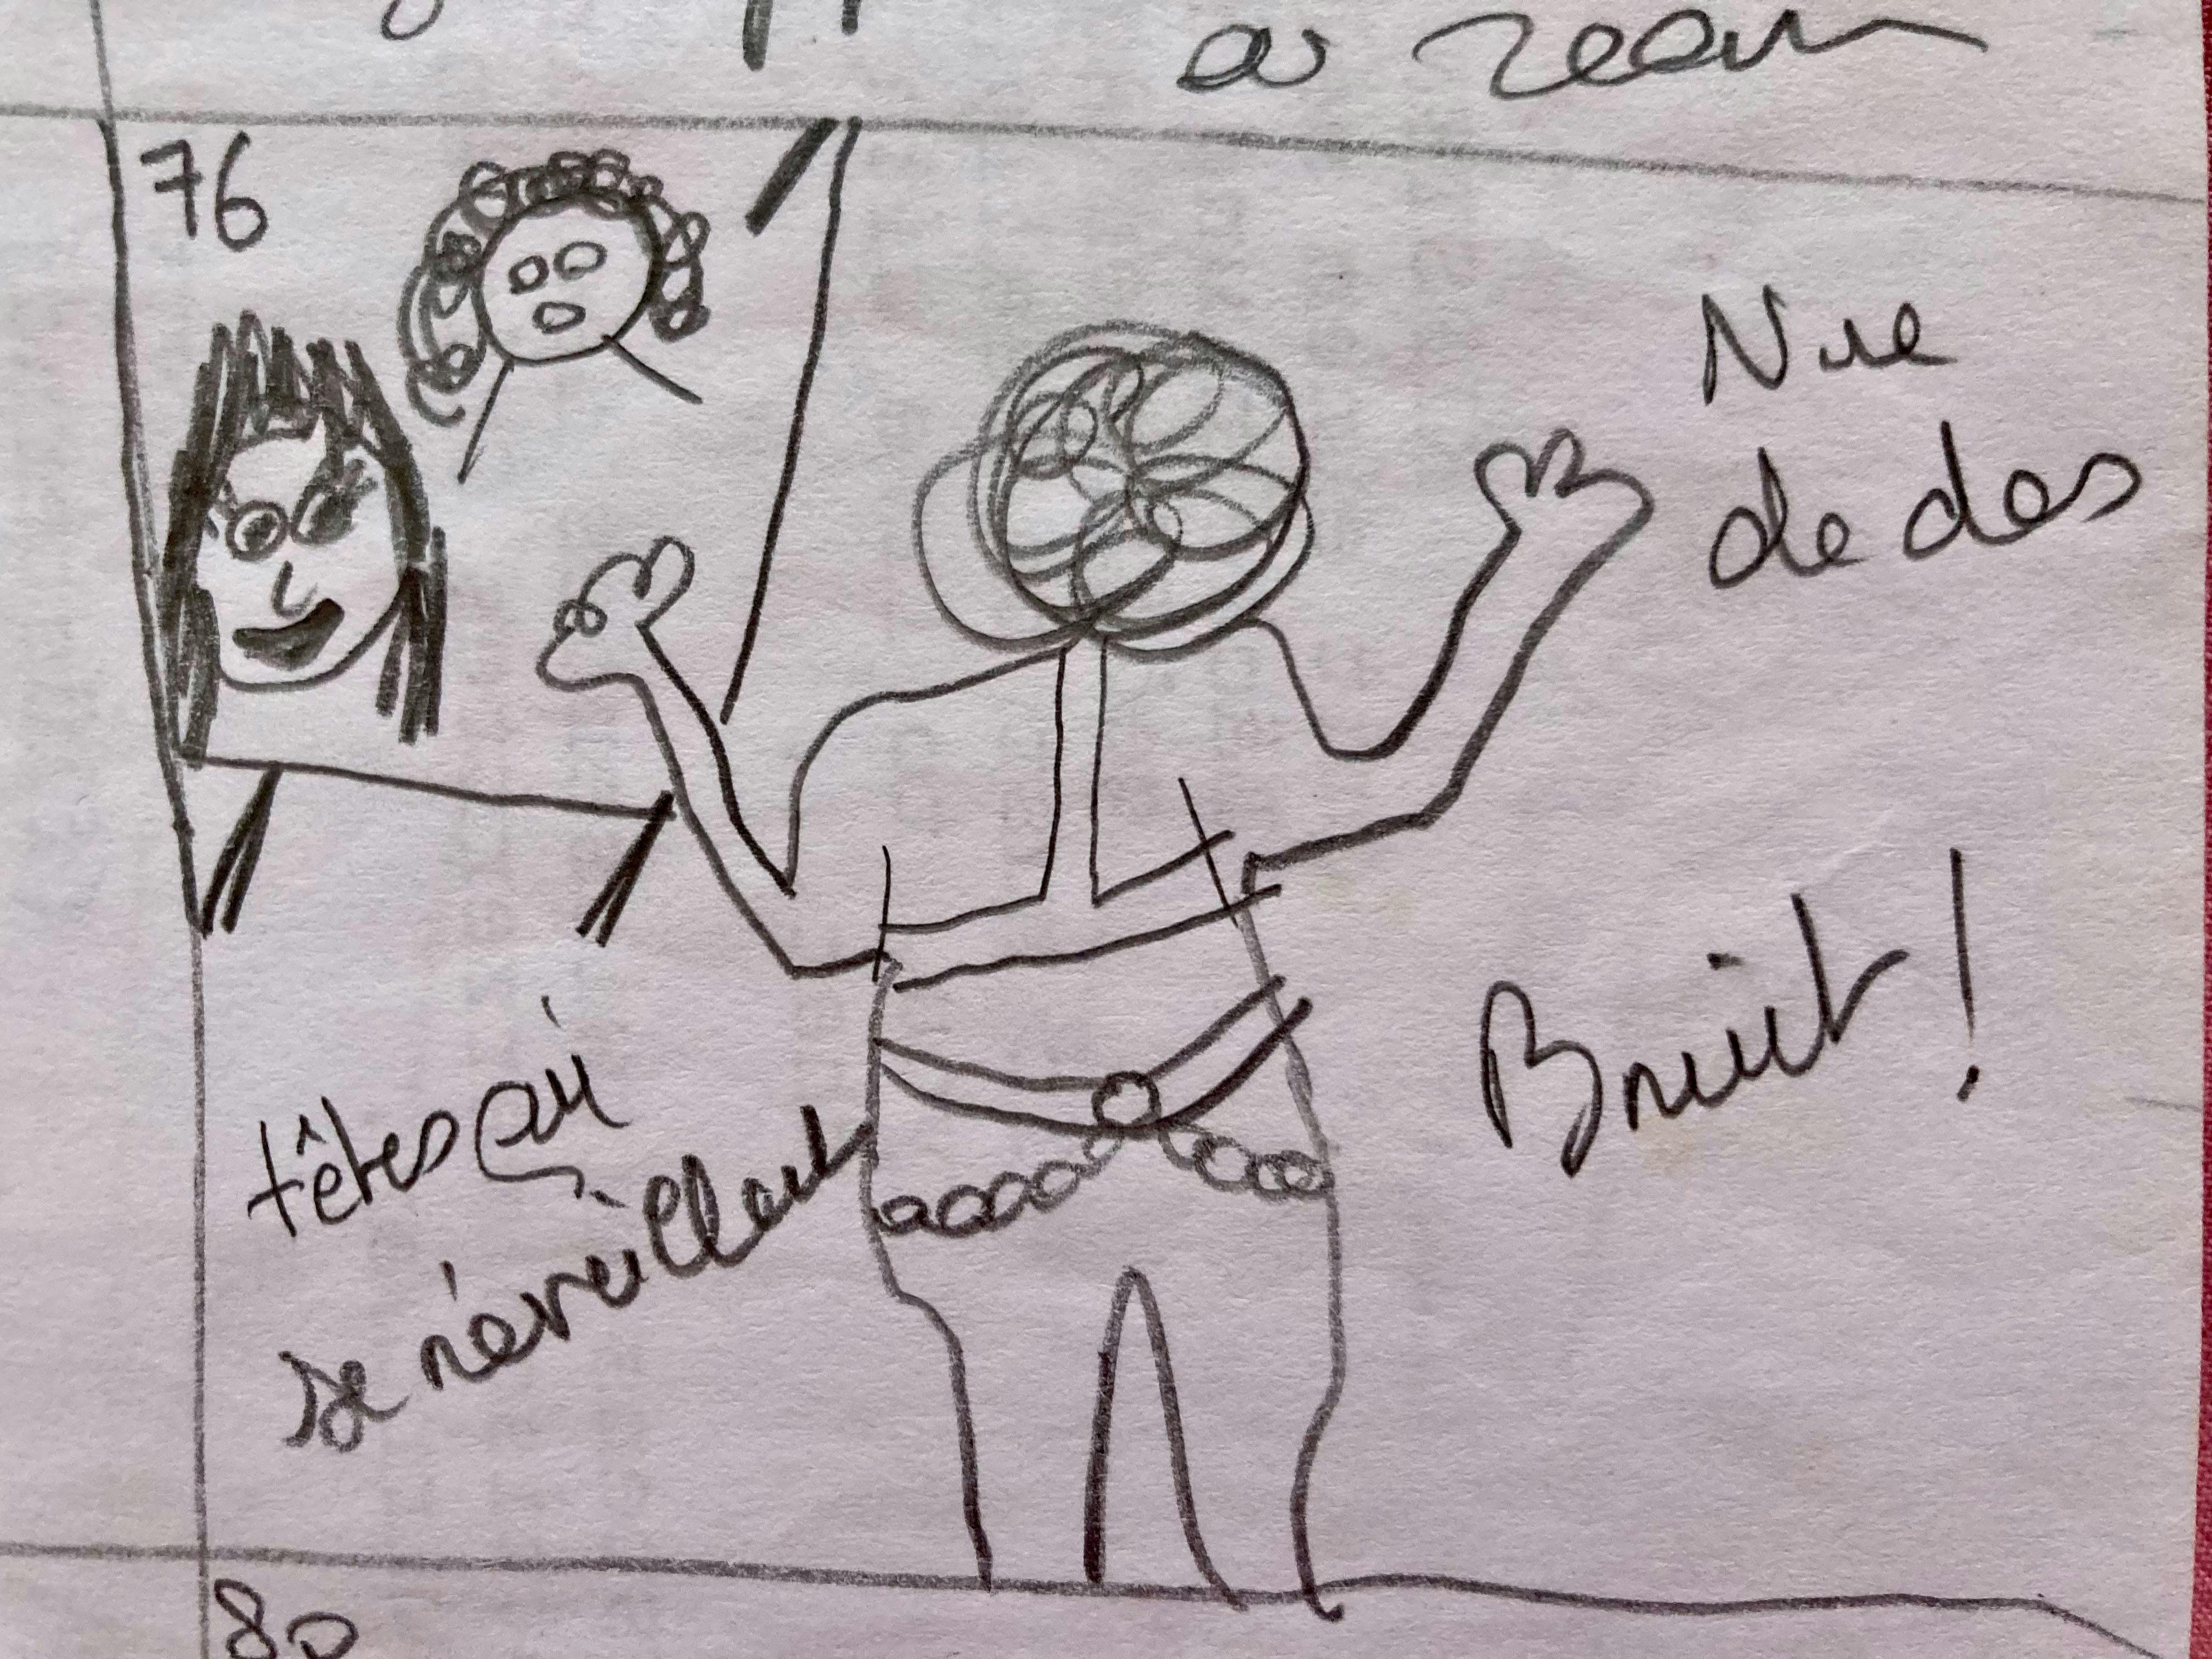 76
Nue
de dos
Bruit !
têtes qui
se réveillent
80